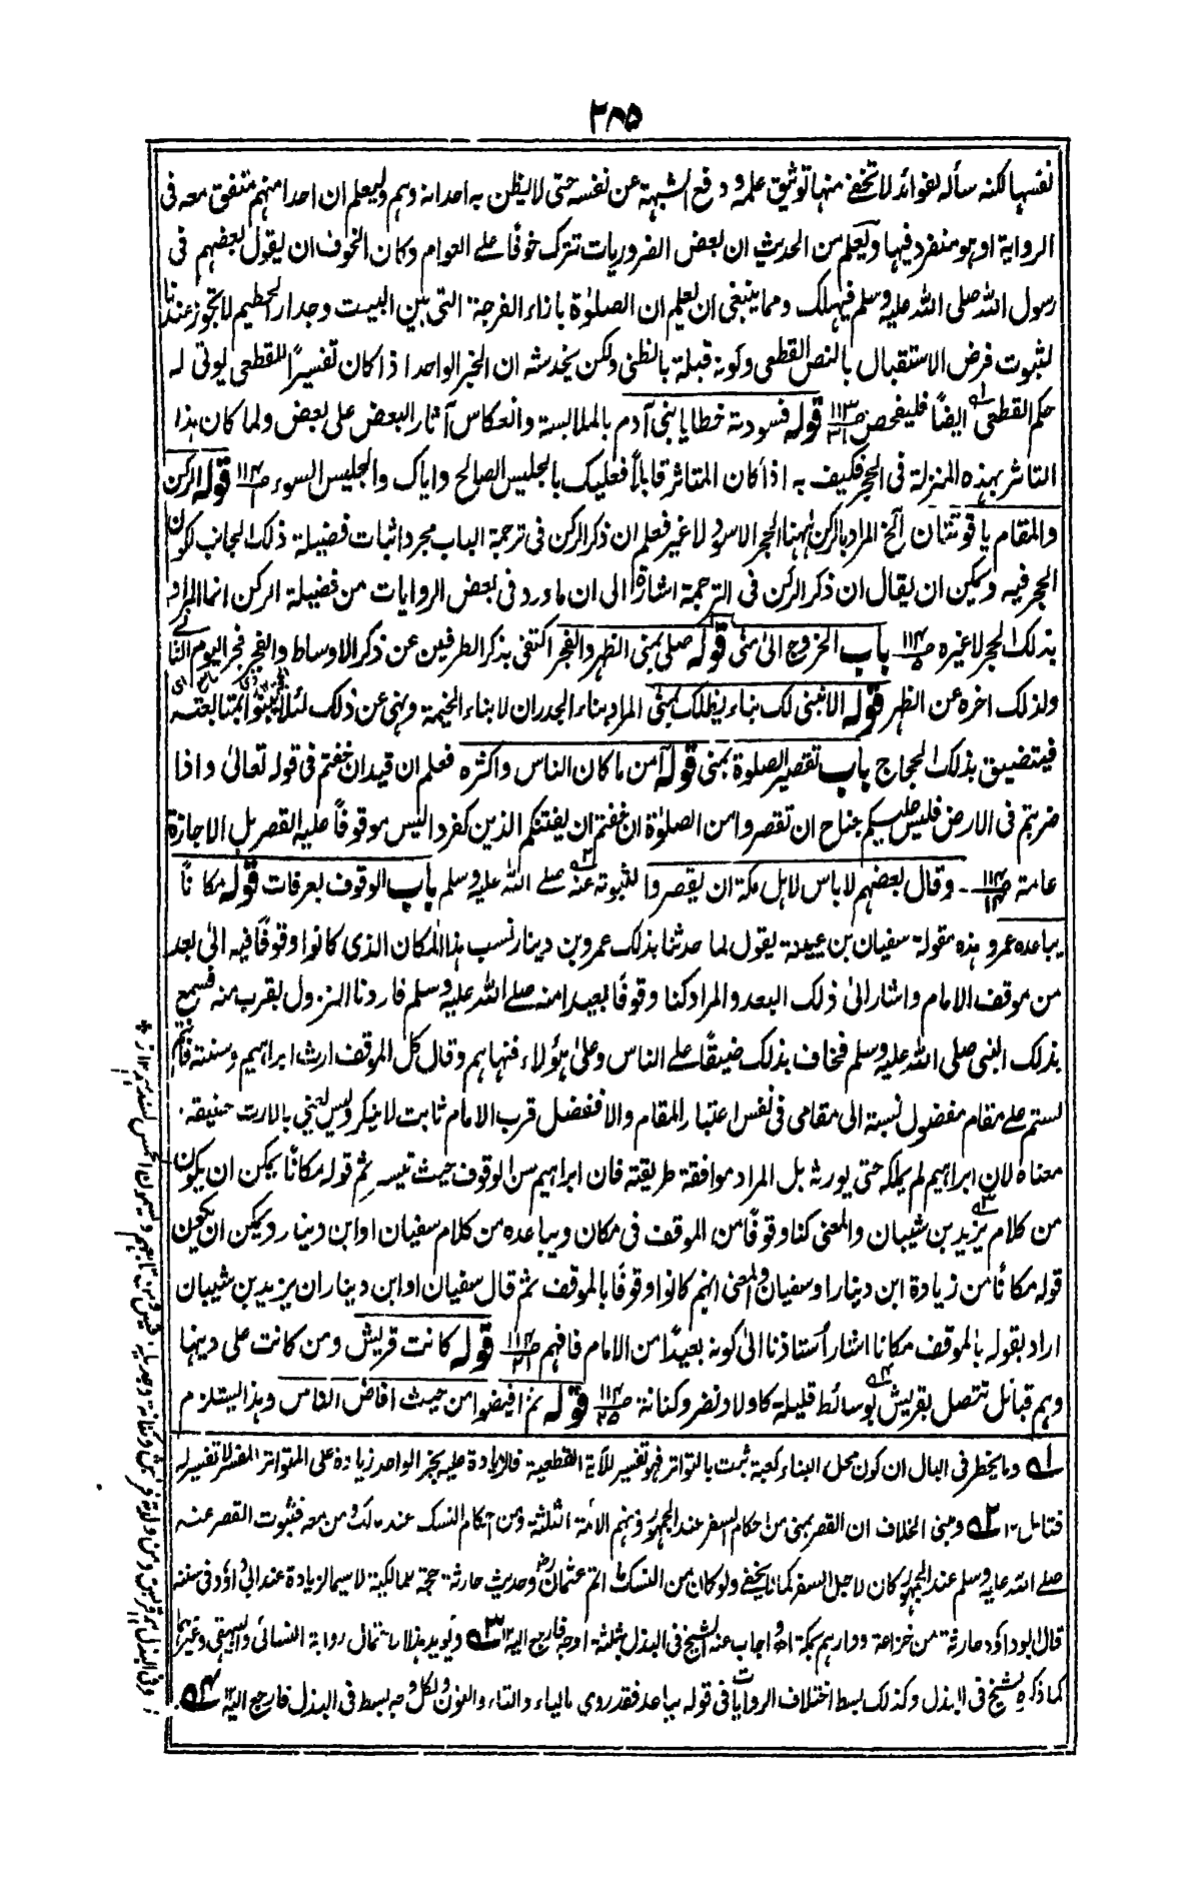 ٢٨٥
نفسها لكنه سأله لفوائد لا تخفى منها توثيق علمه ودفع الشبهة عن نفسه حتى لا يظن به احد انه وهم وليعلم ان احدا منهم متفق معه فى
الرواية او هو منفرد فيها ويعلم من الحديث ان بعض الضروريات تترك خوفاً على العوام وكان الخوف ان يقول بعضهم فى
رسول الله صلى الله عليه وسلم فيهلك ومما ينبغى ان يعلم ان الصلوٰة بازاء الفرجة التى بين البيت وجدار الحطيم لا تجوز عندنا
لثبوت فرض الاستقبال بالنص القطعى وكونه قبلة بالظنى ولكن يخدشه ان الخبر الواحد اذا كان تفسيراً للقطعى يوتى له
حكم القطعى ايضاً فليفحص ص١١٣ قوله فسودته خطايا بنى آدم بالملابسة وانعكاس آثار البعض على بعض ولما كان هذا
التاثر بهذه المنزلة فى الحجر فكيف به اذا كان المتاثر قابلاً فعليك بالجليس الصالح واياك والجليس السوء ص١١٤ قوله الركن
والمقام ياقوتتان آلخ المراد بالركن ههنا الحجر الاسود لا غير فعلم ان ذكر الركن فى ترجمة الباب مجرد اثبات فضيلة ذلك الجانب لكون
الحجر فيه ويمكن ان يقال ان ذكر الركن فى الترجمة اشارة الى ان ما ورد فى بعض الروايات من فضيلة الركن انما المراد
بذلك الحجر لا غيره ص١١٤ باب الخروج الى منى قوله صلى بمنى الظهر والفجر اكتفى بذكر الطرفين عن ذكر الاوساط والفجر فجر اليوم الثانى
ولذلك اخره عن الظهر قوله الا نبنى لك بناء يظلك بمنى المراد بناء الجدران لا بناء الخيمة ونهى عن ذلك لئلا يبنوا بمتابعته
فيتضيق بذلك الحجاج باب تقصير الصلوة بمنى قوله آمن ما كان الناس واكثره فعلم ان قيد ان خفتم فى قوله تعالى واذا
ضربتم فى الارض فليس عليكم جناح ان تقصروا من الصلوٰة ان خفتم ان يفتنكم الذين كفروا ليس موقوفاً عليه القصر بل الاجازة
عامة ص١١٤ وقال بعضهم لا باس لاهل مكة ان يقصروا لثبوته عنه صلى الله عليه وسلم باب الوقوف بعرفات قوله مكاناً
يباعده عمرو هذه مقولة سفيان بن عيينة يقول لما حدثنا بذلك عمرو بن دينار نسب هذا المكان الذى كانوا وقوفاً فيه الى بعد
من موقف الامام واشار الى ذلك البعد والمراد كنا وقوفاً بعيدا منه صلى الله عليه وسلم فاردنا النزول بقرب منه فسمع
بذلك النبى صلى الله عليه وسلم فخاف بذلك ضيقاً على الناس وعلى هؤلاء فنهاهم وقال كل الموقف ارث ابراهيم وسنته فانتم
لستم على مقام مفضول نسبة الى مقامى فى نفس اعتبار المقام والا ففضل قرب الامام ثابت لا ينكر وليس يعنى بالارث حقيقة
معناه لان ابراهيم لم يملكه حتى يورثه بل المراد موافقة طريقته فان ابراهيم سن الوقوف حيث تيسر ثم قوله مكاناً يمكن ان يكون
من كلام يزيد بن شيبان والمعنى كنا وقوفاً من الموقف فى مكان ويباعده من كلام سفيان او ابن دينار ويمكن ان يكون
قوله مكاناً من زيادة ابن دينار او سفيان والمعنى انهم كانوا وقوفاً بالموقف ثم قال سفيان او ابن دينار ان يزيد بن شيبان
اراد بقوله بالموقف مكانا اشار استاذنا الى كونه بعيداً من الامام فافهم ص١١٤ قوله كانت قريش ومن كانت على دينها
وهم قبائل تتصل بقريش بوسائط قليلة كاولاد نضر وكنانة ص١١٤ قوله ثم افيضوا من حيث افاض الناس وهذا يستلزم
١ه وما يخطر فى البال ان كون محل البناء كعبة ثبت بالتواتر فهو تفسير للآية القطعية فالزيادة عليه بخبر الواحد زيادة على المتواتر المفسر تفسيره
فتامل ١٢ ٢ه ومبنى الخلاف ان القصر بمنى من احكام السفر عند الجمهور ومنهم الائمة الثلثة ومن احكام النسك عند مالك ومن معه فثبوت القصر عنه
صلى الله عليه وسلم عند الجمهور كان لاجل السفر كما لا يخفى ولو كان من النسك لما اتم عثمان وحديث حارثة حجة للمالكية لا سيما لزيادة عند ابى داؤد فى سننه
قال ابو داود حارثة من خزاعة ودارهم بمكة اھ واجاب عنه الشيخ فى البذل بثلثة اوجه فارجع اليه ١٢ ٣ه ويؤيد هذا الاحتمال رواية النسائى والبيهقى وغيرهما
كما ذكره الشيخ فى البذل وكذلك بسط اختلاف الروايات فى قوله يباعد فقد روى بالياء والتاء والنون ولكل وجه بسط فى البذل فارجع اليه ١٢ ٤ه